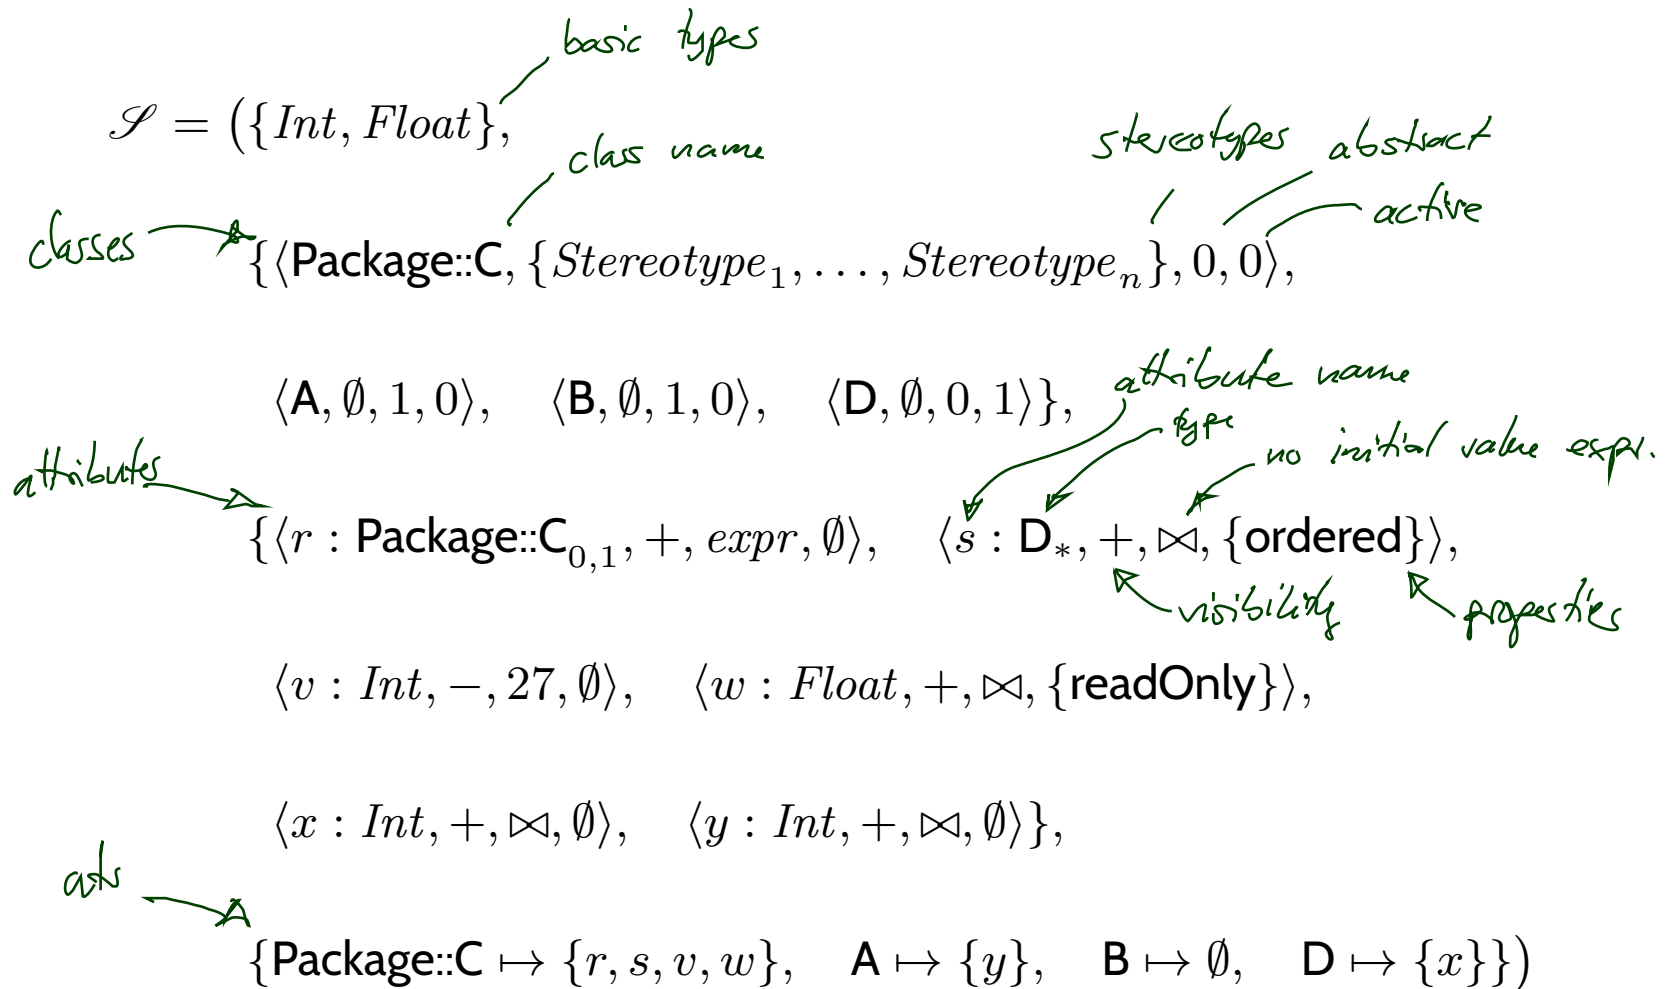 basic types
𝒮 = ({Int, Float},
class name
stereotypes abstract
active
classes
{⟨Package::C, {Stereotype₁, . . . , Stereotypeₙ}, 0, 0⟩,
⟨A, ∅, 1, 0⟩, ⟨B, ∅, 1, 0⟩, ⟨D, ∅, 0, 1⟩},
attribute name
type
no initial value expr.
attributes
{⟨r : Package::C₀,₁, +, expr, ∅⟩, ⟨s : D∗, +, ⋈, {ordered}⟩,
visibility properties
⟨v : Int, −, 27, ∅⟩, ⟨w : Float, +, ⋈, {readOnly}⟩,
⟨x : Int, +, ⋈, ∅⟩, ⟨y : Int, +, ⋈, ∅⟩},
{Package::C ↦ {r, s, v, w}, A ↦ {y}, B ↦ ∅, D ↦ {x}})